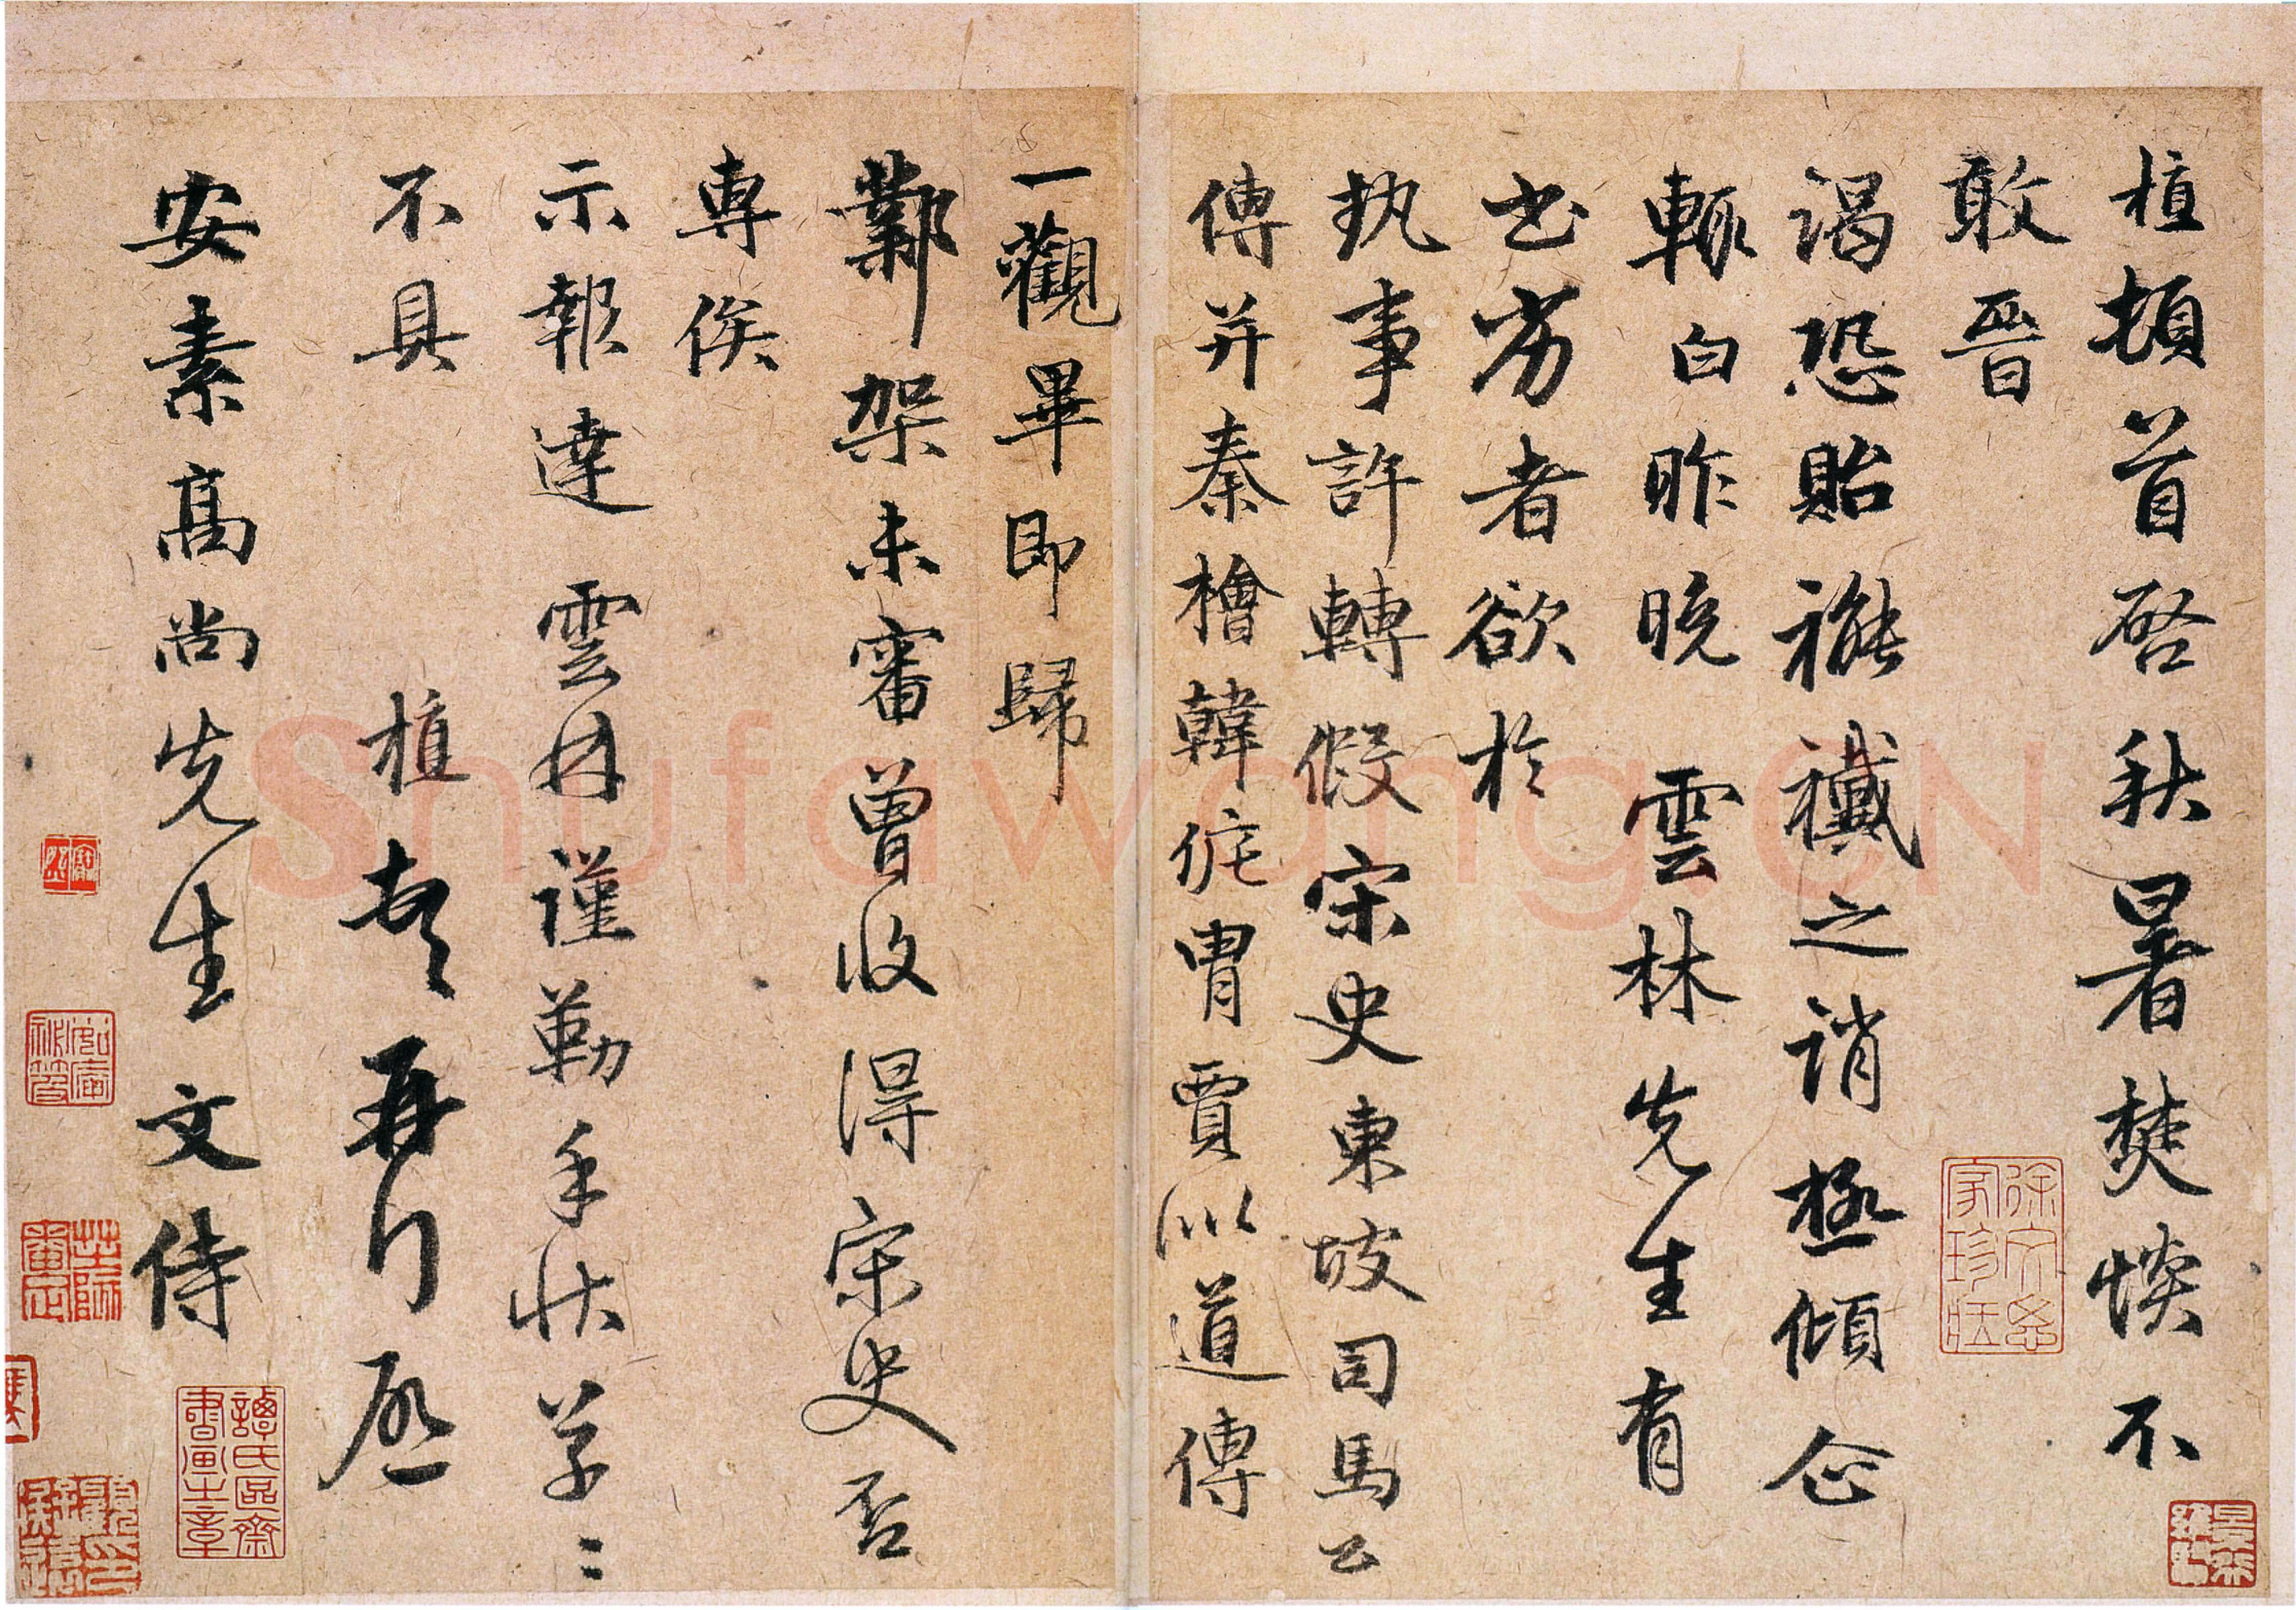 植頓首啓秋暑焚惔不
敢晉
謁恐貽褦襶之誚極傾企
輒白昨晚雲林先生有
出劣者欲於
执事許轉假宋史東坡司馬公
傳并秦檜韓侂胄賈似道傳
一觀畢即歸
鄴架未審曾收得宋史否
專俟
示報達雲林謹勒手狀草〻
不具
植頓首再行啓
安素高尚先生文侍
徐宗
家珍
譚氏區齋
書畫之章
Shufawang.CN